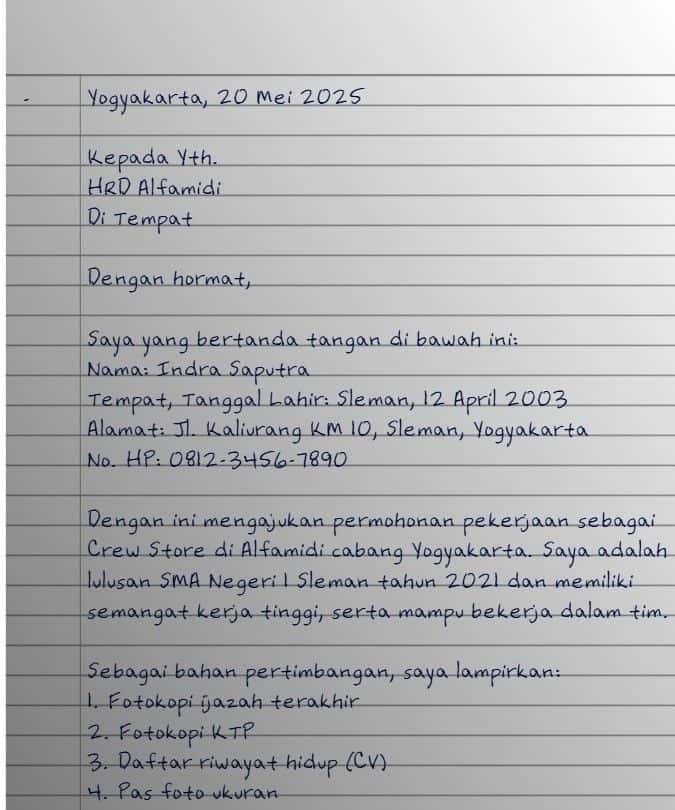 Yogyakarta, 20 Mei 2025
Kepada Yth.
HRD Alfamidi
Di Tempat
Dengan hormat,
Saya yang bertanda tangan di bawah ini:
Nama: Indra Saputra
Tempat, Tanggal Lahir: Sleman, 12 April 2003
Alamat: Jl. Kaliurang KM 10, Sleman, Yogyakarta
No. HP: 0812-3456-7890
Dengan ini mengajukan permohonan pekerjaan sebagai
Crew Store di Alfamidi cabang Yogyakarta. Saya adalah
lulusan SMA Negeri 1 Sleman tahun 2021 dan memiliki
semangat kerja tinggi, serta mampu bekerja dalam tim.
Sebagai bahan pertimbangan, saya lampirkan:
1. Fotokopi ijazah terakhir
2. Fotokopi KTP
3. Daftar riwayat hidup (CV)
4. Pas foto ukuran